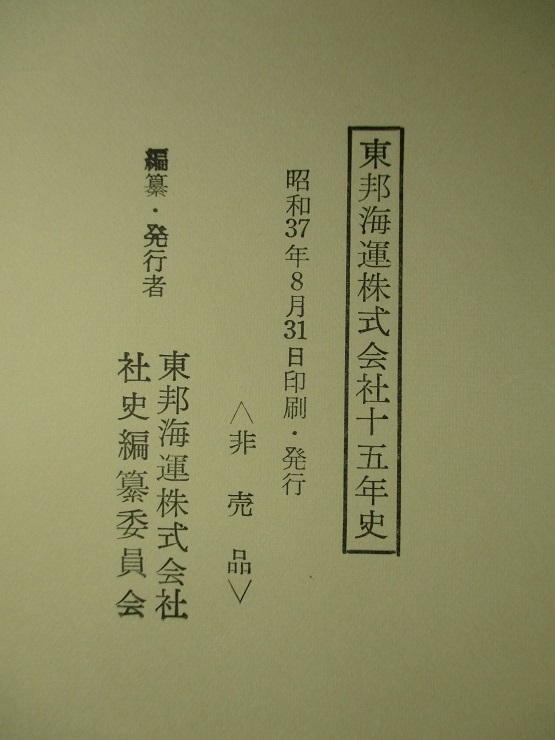 東邦海運株式会社十五年史
昭和37年8月31日印刷・発行
〈非売品〉
編纂・発行者
東邦海運株式会社
社史編纂委員会